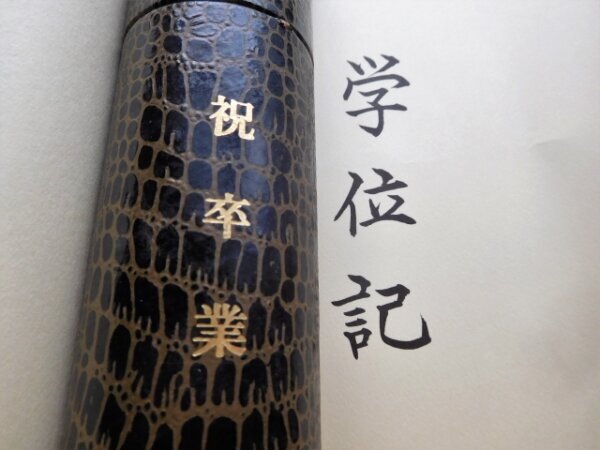 学位記
祝卒業